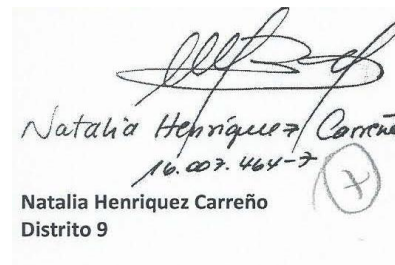 Natalia Henríquez Carreño
16.007.464-7
Natalia Henriquez Carreño
Distrito 9